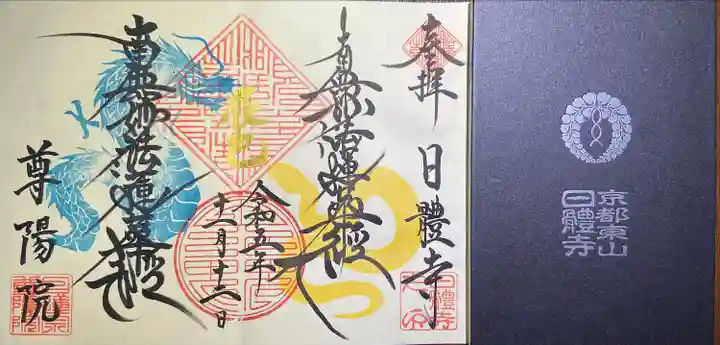 奉拝
日體寺
南無妙法蓮華経
令和五年
十一月十二日
南無妙法蓮華経
尊陽院
京都東山
日體寺